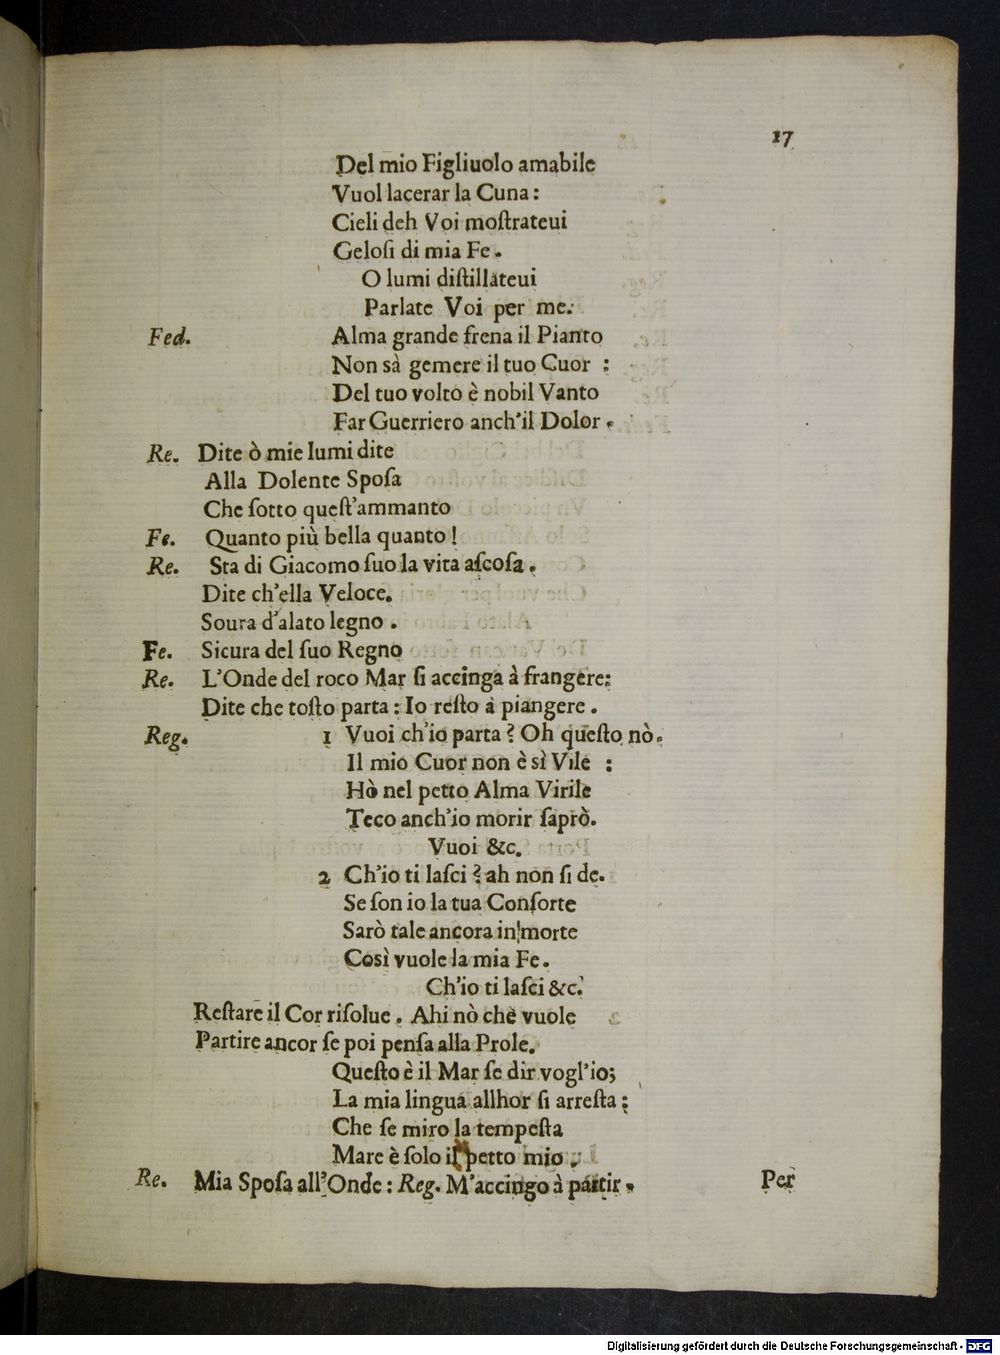 17
Del mio Figliuolo amabile
Vuol lacerar la Cuna:
Cieli deh Voi moſtrateui
Geloſi di mia Fe.
O lumi diſtillateui
Parlate Voi per me.
Fed. Alma grande frena il Pianto
Non sà gemere il tuo Cuor :
Del tuo volto è nobil Vanto
Far Guerriero anch'il Dolor.
Re. Dite ò mie lumi dite
Alla Dolente Spoſa
Che ſotto queſt'ammanto
Fe. Quanto più bella quanto !
Re. Sta di Giacomo ſuo la vita aſcoſa.
Dite ch'ella Veloce.
Soura d'alato legno.
Fe. Sicura del ſuo Regno
Re. L'Onde del roco Mar ſi accinga à frangere:
Dite che toſto parta: Io reſto à piangere.
Reg. 1 Vuoi ch'io parta? Oh queſto nò.
Il mio Cuor non è sì Vile :
Hò nel petto Alma Virile
Teco anch'io morir ſaprò.
Vuoi &c.
2 Ch'io ti laſci? ah non ſi de.
Se ſon io la tua Conſorte
Sarò tale ancora in morte
Così vuole la mia Fe.
Ch'io ti laſci &c.
Reſtare il Cor riſolue. Ahi nò che vuole
Partire ancor ſe poi penſa alla Prole.
Queſto è il Mar ſe dir vogl'io;
La mia lingua allhor ſi arreſta:
Che ſe miro la tempeſta
Mare è ſolo il petto mio.
Re. Mia Spoſa all'Onde: Reg. M'accingo à partir.
Per
Digitalisierung gefördert durch die Deutsche Forschungsgemeinschaft - DFG